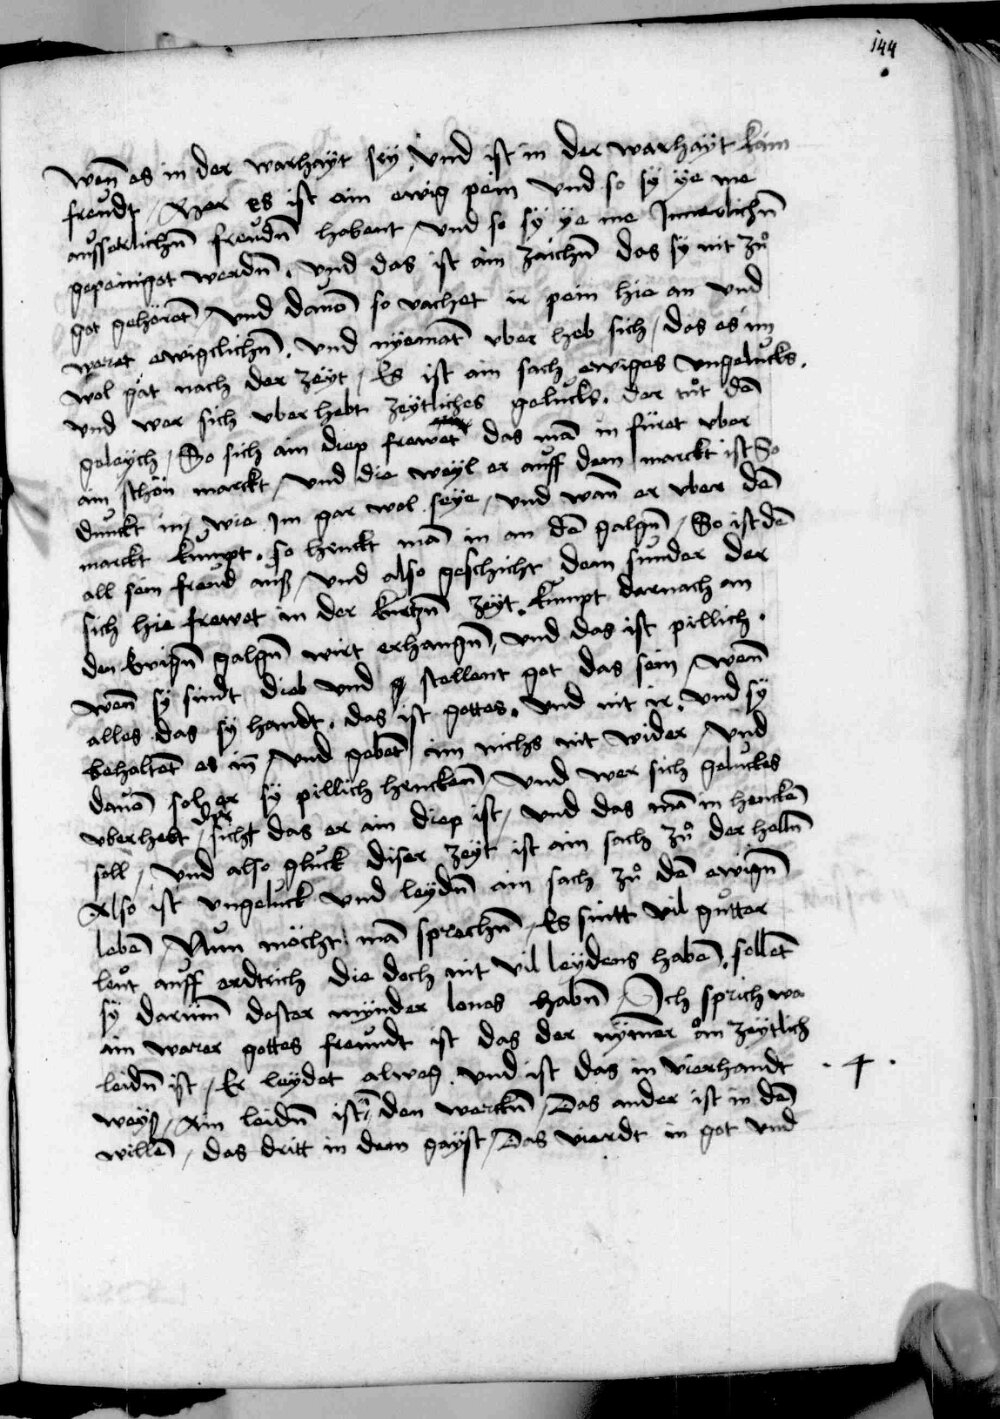 144
wen̄ es in der warhayt sey / vnd ist in der warhayt kain
freudt / Mer es ist ain ewig pein vnd so sy ye me
ausserlichn̄ freudn̄ habent / vnd so sy ye me Innerlichn̄
gepeiniget werdn̄ . vnd das ist ain zaichn̄ das sy nit zů
got gehörēt / vnd dauō so vachet ir pein hie an vnd
weret ewigclichn̄ . vnd nyemāt vber heb sich / das es im
wol gät nach der zeyt / Es ist ain sach ewiges vngelucks .
vnd wer sich vber hebt zeytliches gelucks . der tůt dē
geleych / So sich ain diep frewet das mā in füret vber
ain schön marckt / vnd die weyl er auff dem marckt ist So
dunckt in / wie Im gar wol seye / vnd wan̄ er vber dē
marckt kumpt . so henckt mā in an dē galgn̄ / So ist dē
all sein freud auß / vnd also geschicht dem sunder der
sich hie frewet in der kurtzn̄ zeyt . kumpt darnach an
den Ewign̄ galgn̄ wirt erhangn̄ / vnd das ist pillich .
wen̄ sy sindt dieb vnd stellent got das sein / wen̄
alles das sy handt . das ist gottes . vnd nit ir . vnd sy
behaltēt es in̄ / vnd gebēt im nichs nit wider / vnd
dauō sol er sy pillich henckenn / vnd wer sich geluckes
vberhebt / der sicht das er ain diep ist / vnd das mā in henckē
soll / vnd also gluck diser zeyt ist ain sach zů der helln̄
Also ist vngeluck vnd leydn̄ ain sach zů dē ewign̄
lebē / Nun möcht mā sprechn̄ / Es sintt vil gůtter
leůt auff erdtrich die doch nit vil leydens habē . sollēt
sy darum̄ dester mynder lones habn̄ / Ich sprich wa
ain warer gottes freundt ist das der nymer on zeytlich
leidn̄ ist / Er leydet alweg . vnd ist das in vierhandt . 4 .
weyß / Ain leidn̄ ist in den werckn̄ / Das ander ist in dē
willē / das dritt in dem gayst / Das vierdt in got vnd